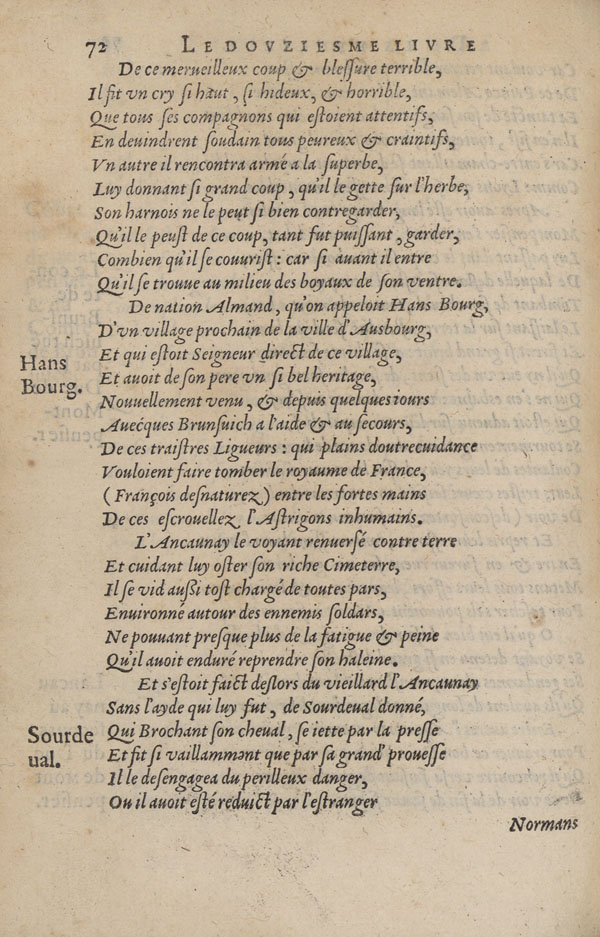 72 LE DOVZIESME LIVRE
De ce merueilleux coup & blesſure terrible,
Il fit vn cry ſi haut, ſi hideux, & horrible,
Que tous ſes compagnons qui eſtoient attentifs,
En deuindrent ſoudain tous peureux & craintifs,
Vn autre il rencontra armé a la ſuperbe,
Luy donnant ſi grand coup, qu'il le gette ſur l'herbe,
Son harnois ne le peut ſi bien contregarder,
Qu'il le peuſt de ce coup, tant fut puiſſant, garder,
Combien qu'il ſe couuriſt : car ſi auant il entre
Qu'il ſe trouue au milieu des boyaux de ſon ventre.
De nation Almand, qu'on appeloit Hans Bourg,
D'vn village prochain de la ville d'Ausbourg,
Hans
Bourg.
Et qui eſtoit Seigneur direct de ce village,
Et auoit de ſon pere vn ſi bel heritage,
Nouuellement venu, & depuis quelques iours
Auecques Brunſuich a l'aide & au ſecours,
De ces traiſtres Ligueurs : qui plains doutrecuidance
Vouloient faire tomber le royaume de France,
(François deſnaturez) entre les fortes mains
De ces eſcrouellez l'Aſtrigons inhumains.
L'Ancaunay le voyant renuerſé contre terre
Et cuidant luy oſter ſon riche Cimeterre,
Il ſe vid auſſi toſt chargé de toutes pars,
Enuironné autour des ennemis ſoldars,
Ne pouuant preſque plus de la fatigue & peine
Qu'il auoit enduré reprendre ſon haleine.
Et s'eſtoit faict deſlors du vieillard l'Ancaunay
Sans l'ayde qui luy fut, de Sourdeual donné,
Sourde
ual.
Qui Brochant ſon cheual, ſe iette par la preſſe
Et fit ſi vaillammant que par ſa grand' proueſſe
Il le deſengagea du perilleux danger,
Ou il auoit eſté reduict par l'eſtranger
Normans